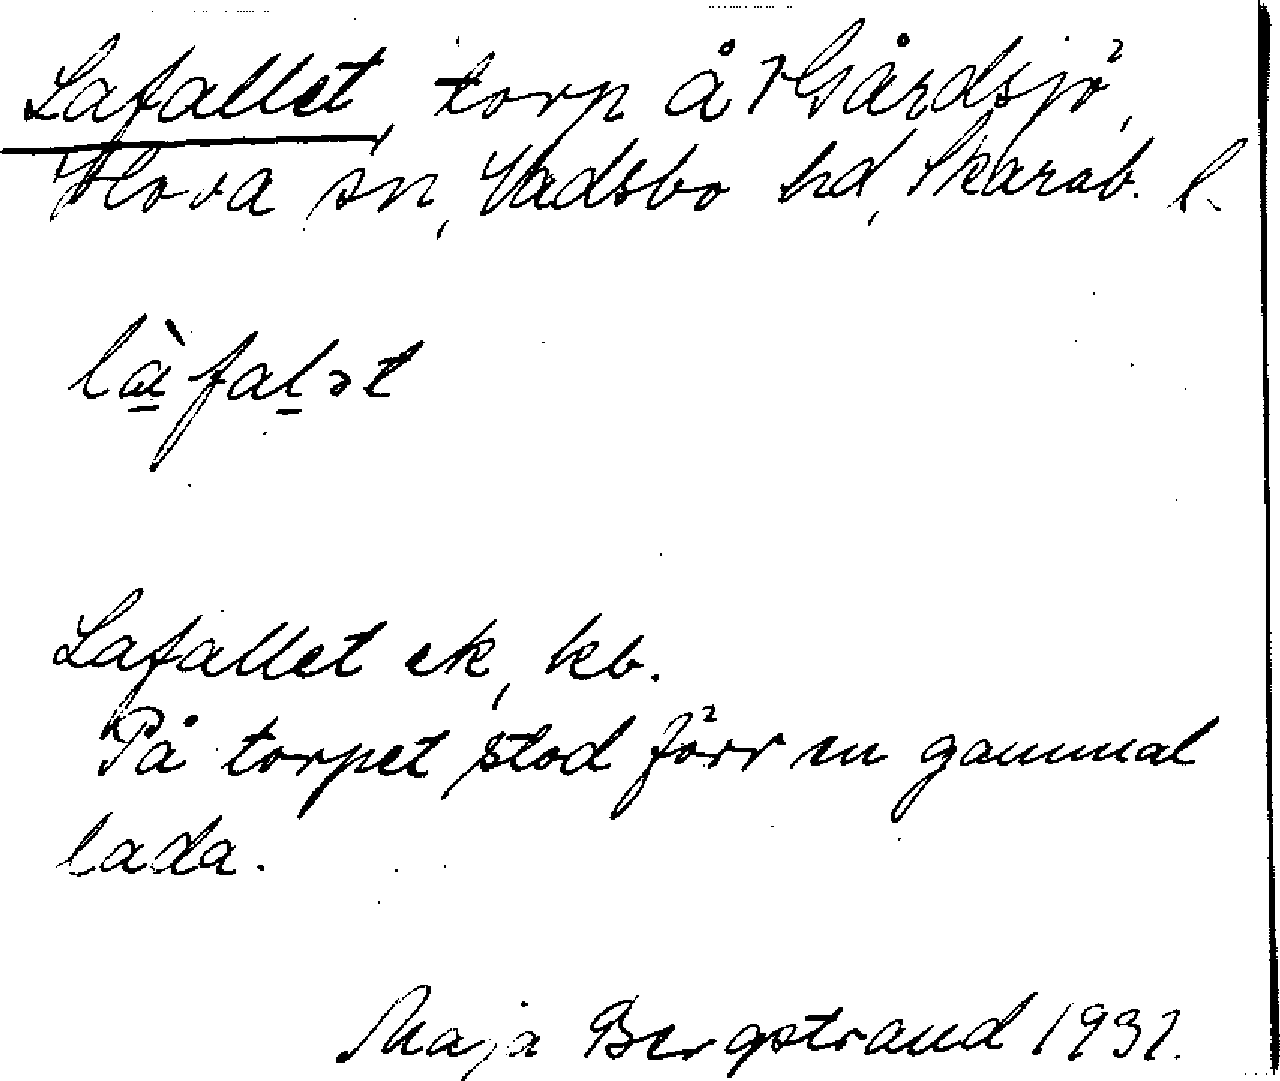 Lafallet, torp å Gårdsjö,
Hova sn, Vadsbo hd, Skarab. l.
là̱faḻət
Lafallet ek, kb.
På torpet stod förr en gammal
lada.
Maja Bergstrand 1931.